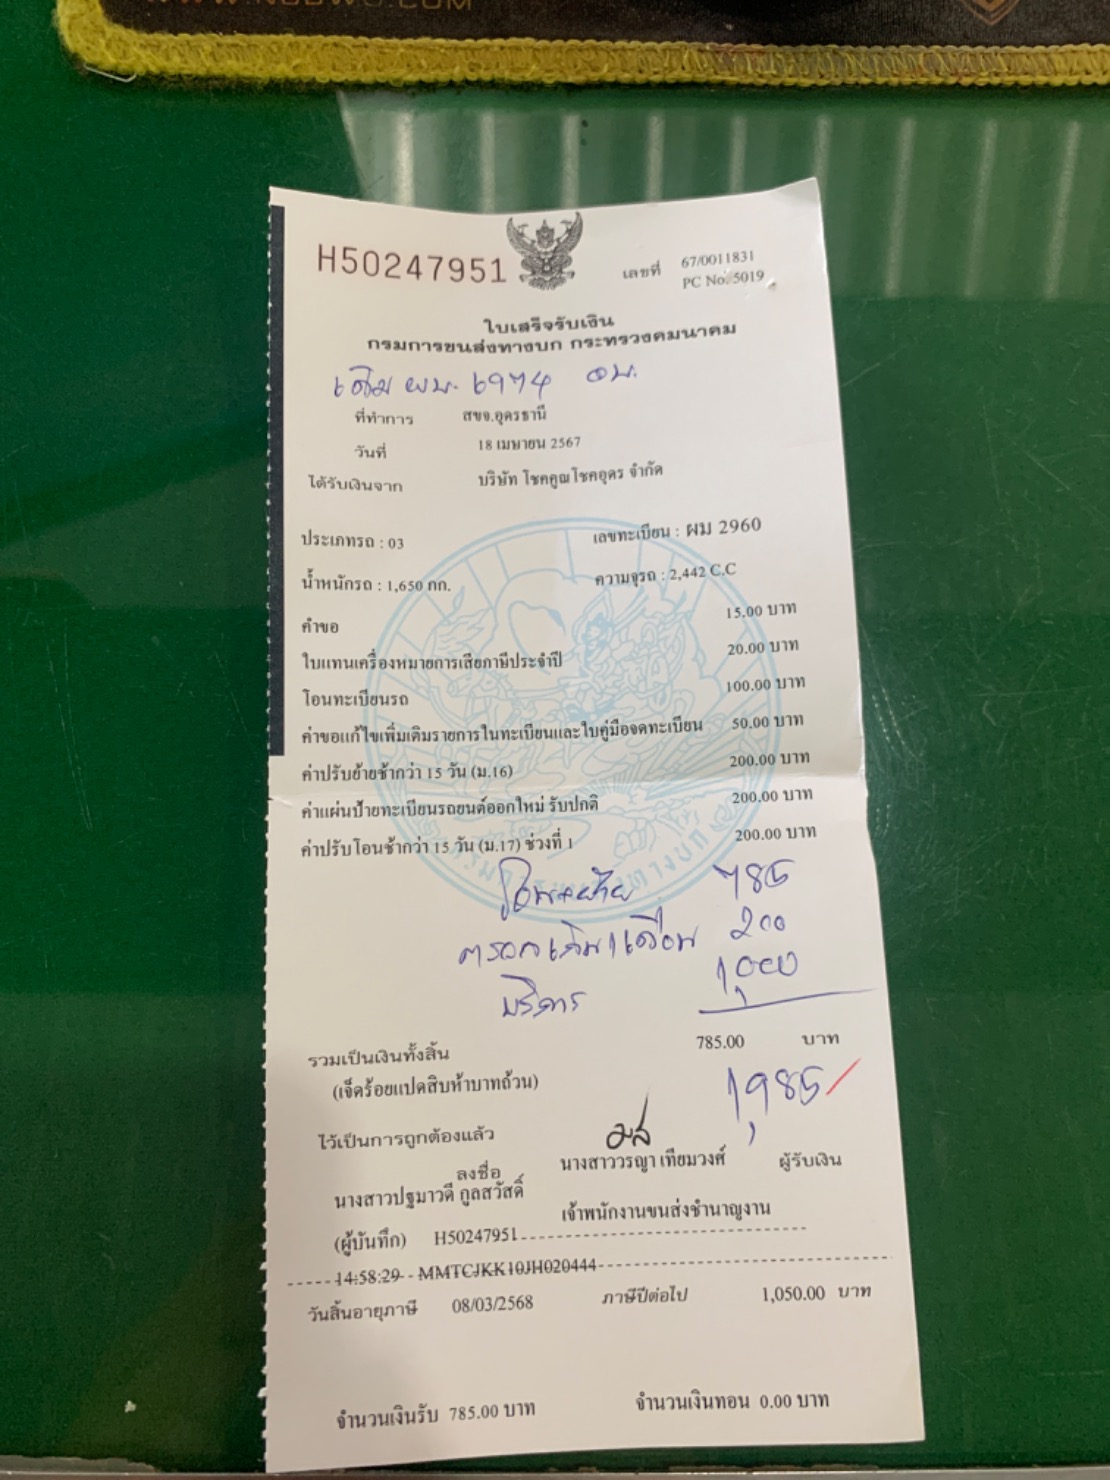 H50247951
เลขที่ 67/0011831
PC No. 5019
ใบเสร็จรับเงิน
กรมการขนส่งทางบก กระทรวงคมนาคม
เดิม ผน. 6974 อบ.
ที่ทำการ สขจ.อุดรธานี
วันที่ 18 เมษายน 2567
ได้รับเงินจาก บริษัท โชคคูณโชคอุดร จำกัด
ประเภทรถ : 03 เลขทะเบียน : ผม 2960
น้ำหนักรถ : 1,650 กก. ความจุรถ : 2,442 C.C
คำขอ 15.00 บาท
ใบแทนเครื่องหมายการเสียภาษีประจำปี 20.00 บาท
โอนทะเบียนรถ 100.00 บาท
ค่าขอแก้ไขเพิ่มเติมรายการในทะเบียนและใบคู่มือจดทะเบียน 50.00 บาท
ค่าปรับย้ายช้ากว่า 15 วัน (ม.16) 200.00 บาท
ค่าแผ่นป้ายทะเบียนรถยนต์ออกใหม่ รับปกติ 200.00 บาท
ค่าปรับโอนช้ากว่า 15 วัน (ม.17) ช่วงที่ 1 200.00 บาท
โอน+ย้าย 785
ตรอ 200
บริการ 1,000
รวมเป็นเงินทั้งสิ้น 785.00 บาท
(เจ็ดร้อยแปดสิบห้าบาทถ้วน)
1,985
ไว้เป็นการถูกต้องแล้ว
ลงชื่อ นางสาววรญา เทียมวงศ์ ผู้รับเงิน
นางสาวปฐมาวดี กูลสวัสดิ์
เจ้าพนักงานขนส่งชำนาญงาน
(ผู้บันทึก) H50247951
14:58:29 MMTCJKK10JH020444
วันสิ้นอายุภาษี 08/03/2568 ภาษีปีต่อไป 1,050.00 บาท
จำนวนเงินรับ 785.00 บาท จำนวนเงินทอน 0.00 บาท